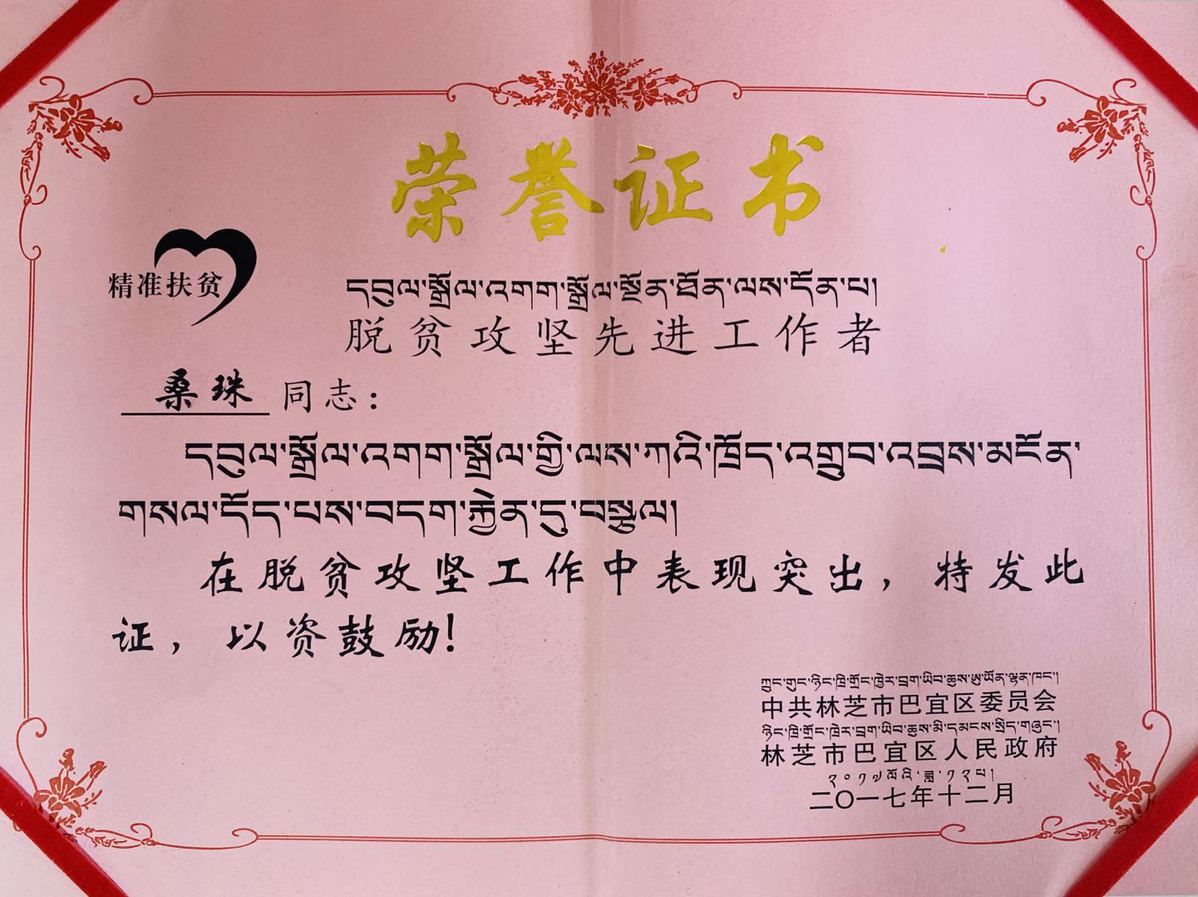 荣誉证书
精准扶贫
དབུལ་སྒྲོལ་འགག་སྒྲོལ་སྔོན་ཐོན་ལས་དོན་པ།
脱贫攻坚先进工作者
桑珠 同志：
དབུལ་སྒྲོལ་འགག་སྒྲོལ་གྱི་ལས་ཀའི་ཁྲོད་འགྲུབ་འབྲས་མངོན་
གསལ་དོད་པས་བདག་རྐྱེན་དུ་བསྩལ།
在脱贫攻坚工作中表现突出，特发此
证，以资鼓励！
ཀྲུང་གུང་ཉིང་ཁྲི་གྲོང་ཁྱེར་བྲག་ཡིབ་ཆུས་ཨུ་ཡོན་ལྷན་ཁང་།
中共林芝市巴宜区委员会
ཉིང་ཁྲི་གྲོང་ཁྱེར་བྲག་ཡིབ་ཆུས་མི་དམངས་སྲིད་གཞུང་།
林芝市巴宜区人民政府
༢༠༡༧ལོའི་ཟླ་༡༢པ།
二〇一七年十二月